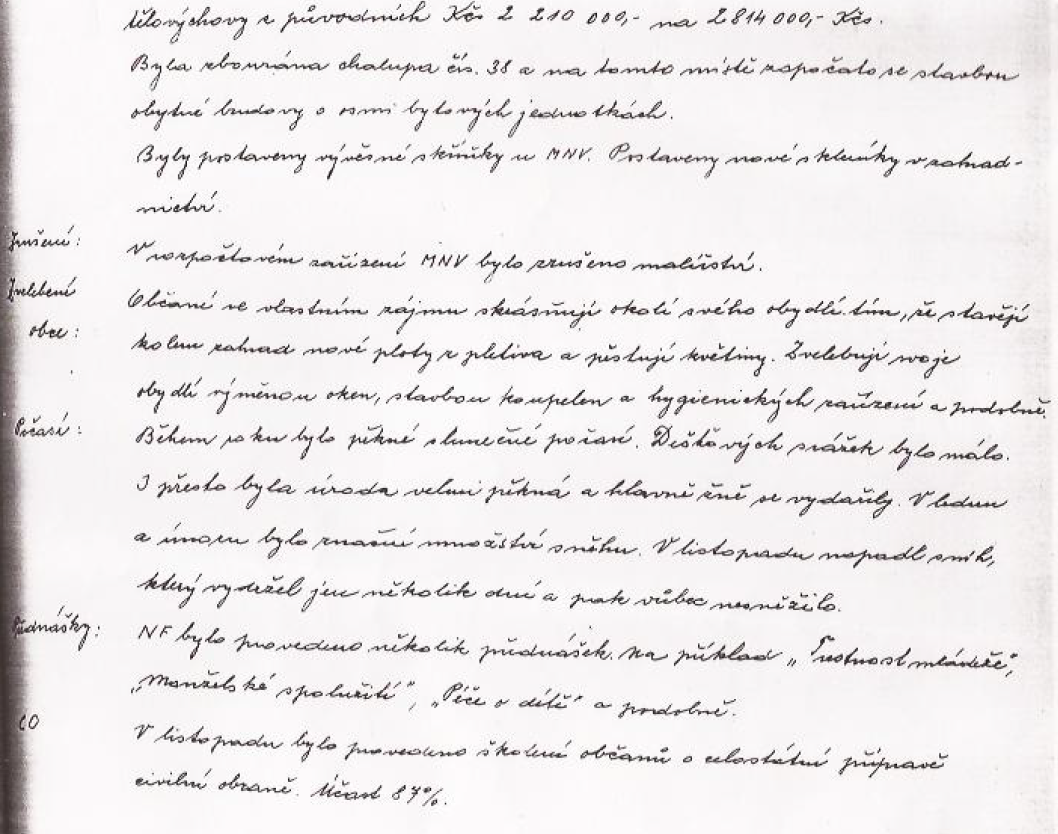 tělovýchovy z původních Kčs 2 210 000,- na 2 814 000,- Kčs.
Byla zbourána chalupa čís. 38 a na tomto místě započato se stavbou
obytné budovy o osmi bytových jednotkách.
Byly postaveny vývěsné skříňky u MNV. Postaveny nové skleníky v zahrad-
nictví.
Zrušení: V rozpočtovém zařízení MNV bylo zrušeno malířství.
Zvelebení Občané ve vlastním zájmu zkrášlují okolí svého obydlí tím, že stavějí
obce: kolem zahrad nové ploty z pletiva a pěstují květiny. Zvelebují svoje
obydlí výměnou oken, stavbou koupelen a hygienických zařízení a podobně.
Počasí: Během roku bylo pěkné slunečné počasí. Dešťových srážek bylo málo.
I přesto byla úroda velmi pěkná a hlavně žně se vydařily. V lednu
a únoru bylo značné množství sněhu. V listopadu napadl sníh,
který vydržel jen několik dní a pak vůbec nesněžilo.
Přednášky: NF bylo provedeno několik přednášek. Na příklad „Trestnost mládeže",
„Manželské spolužití", „Péče o dítě" a podobně.
CO V listopadu bylo provedeno školení občanů o celostátní přípravě
civilní obraně. Účast 87%.